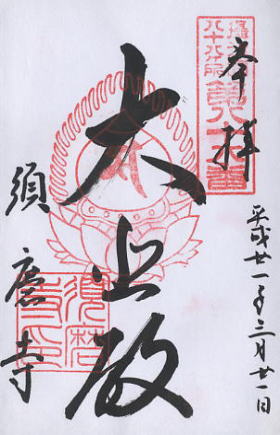 摂津国
八十八所
奉拝
大悲殿
須磨寺
平成廿一年三月廿一日
須磨寺印